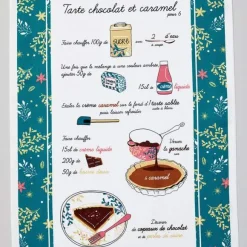 Tarte chocolat et caramel
pour 6
Faire chauffer 100g de
SUCRE
avec 2 d'eau
Une fois que le mélange a une couleur ambrée
ajouter 50g de
15cl de crème liquide
Etaler la crème caramel sur le fond d'tarte sablée
puis laisser refroidir
Faire chauffer
15cl de crème liquide
200g de
50g de beurre doux
Verser la
ganache
sur
le caramel
Décorer
de copeaux de chocolat
et de